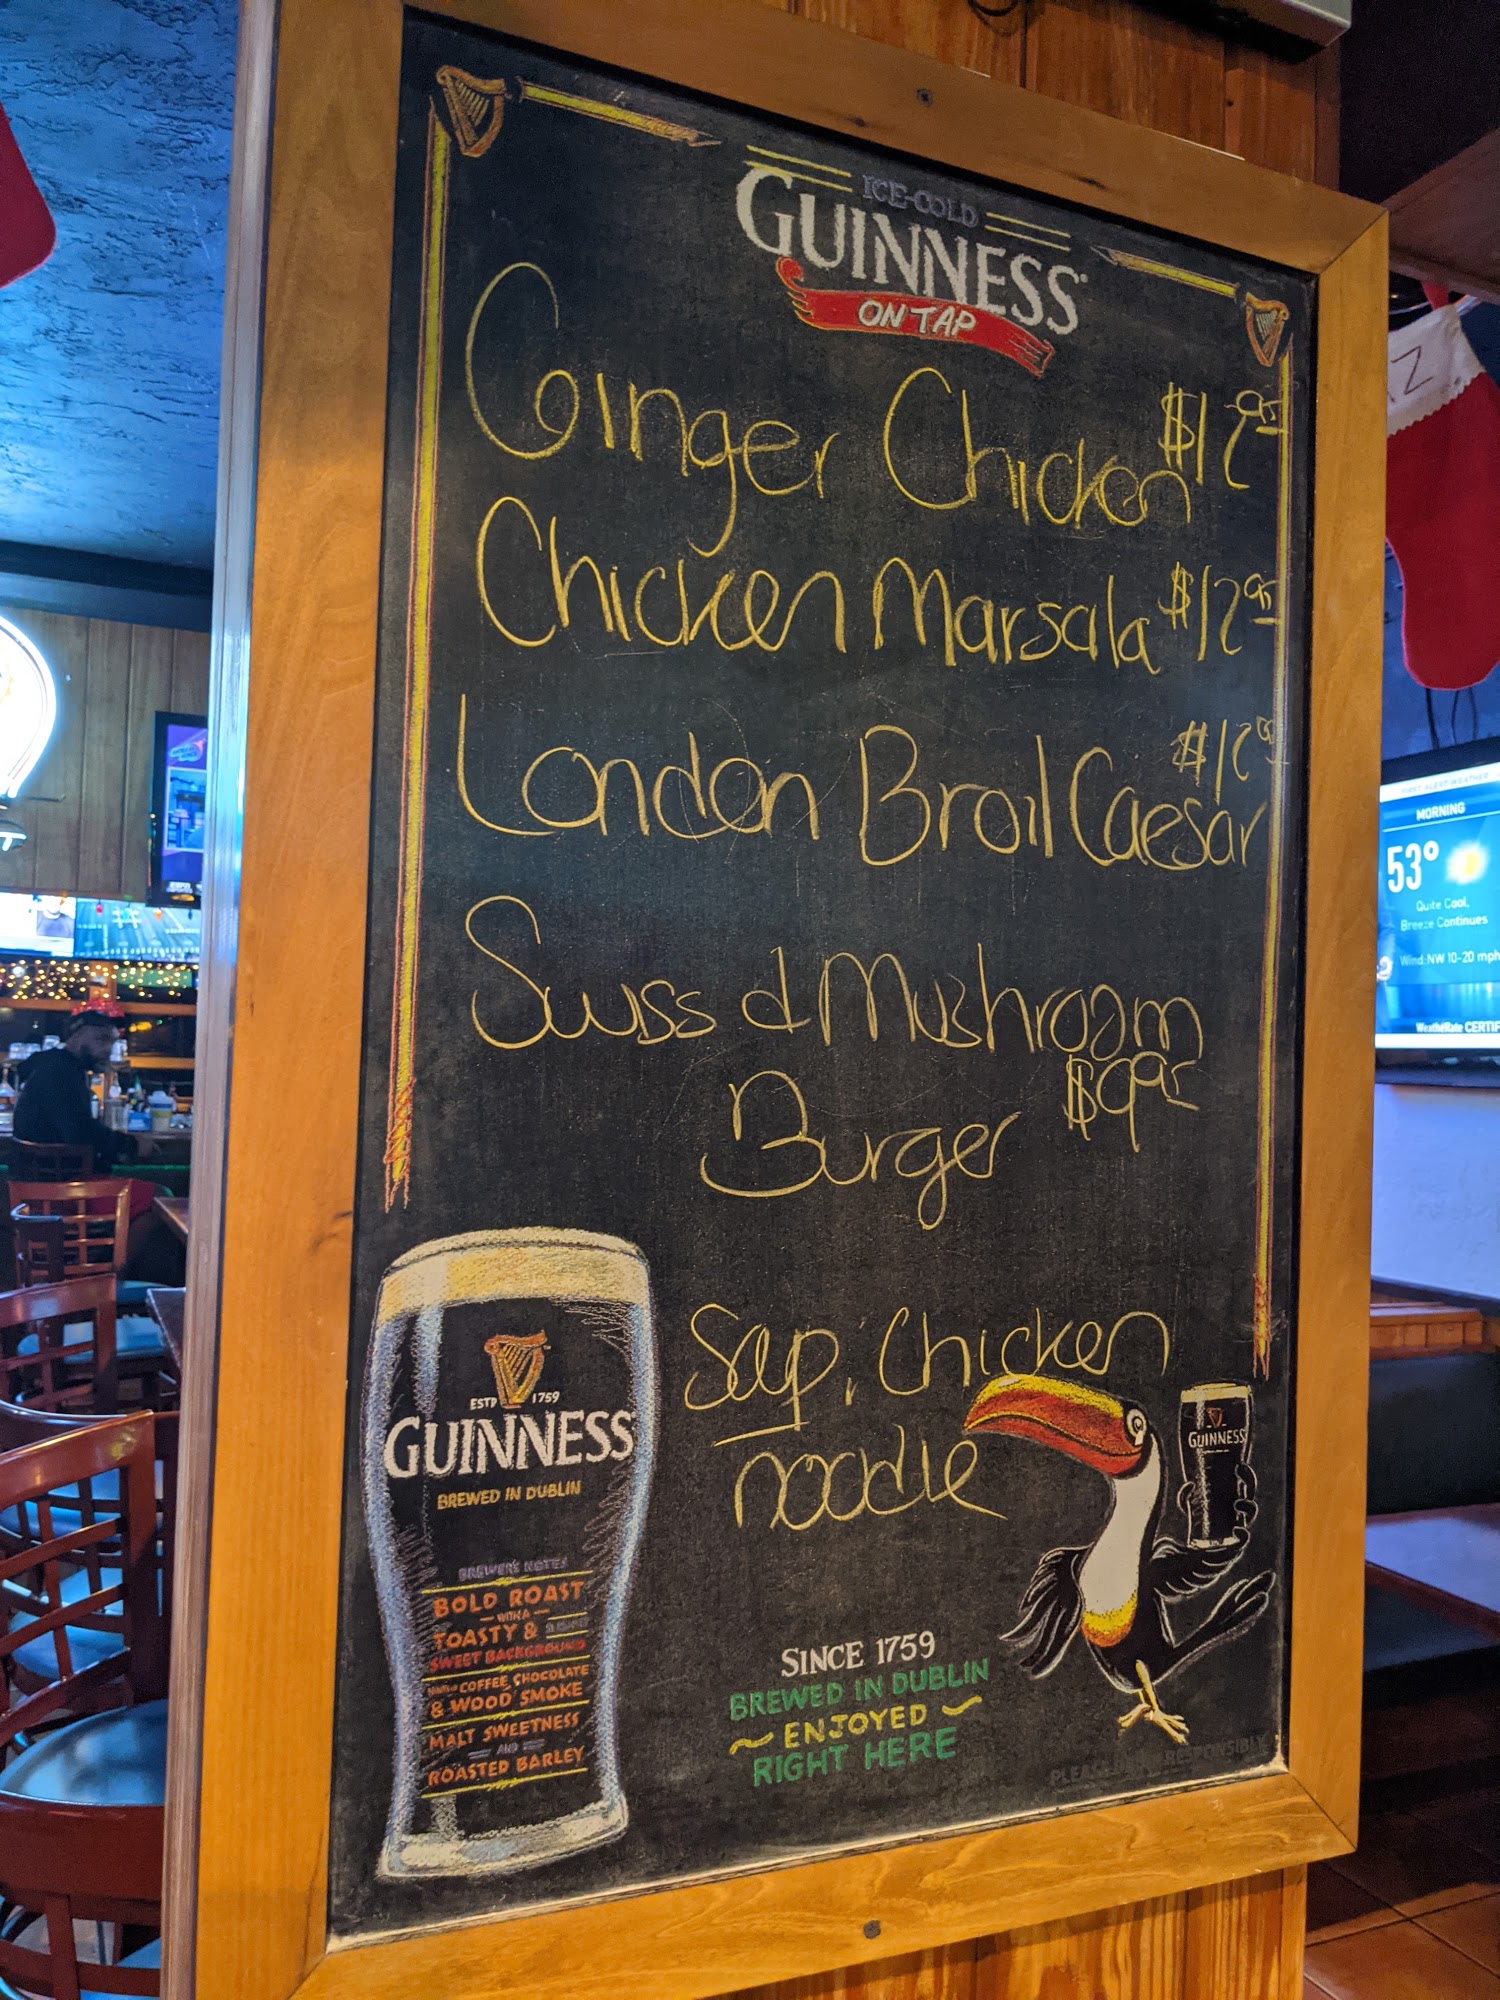 ICE-COLD
GUINNESS
ON TAP
Ginger Chicken $12 95
Chicken Marsala $12 95
London Broil Caesar
Swiss & Mushroom
Burger $9 95
Soup: Chicken
noodle
ESTD 1759
GUINNESS
BREWED IN DUBLIN
BREWER'S NOTES
BOLD ROAST
WITH A
TOASTY &
SWEET BACKGROUND
COFFEE, CHOCOLATE
& WOOD SMOKE
MALT SWEETNESS
AND
ROASTED BARLEY
GUINNESS
SINCE 1759
BREWED IN DUBLIN
ENJOYED
RIGHT HERE
PLEASE RESPONSIBLY
Z
FIRST ALERT WEATHER
MORNING
53°
Quite Cool,
Breeze Continues
Wind: NW 10-20 mph
WeatheRate CERTIF
ESPN